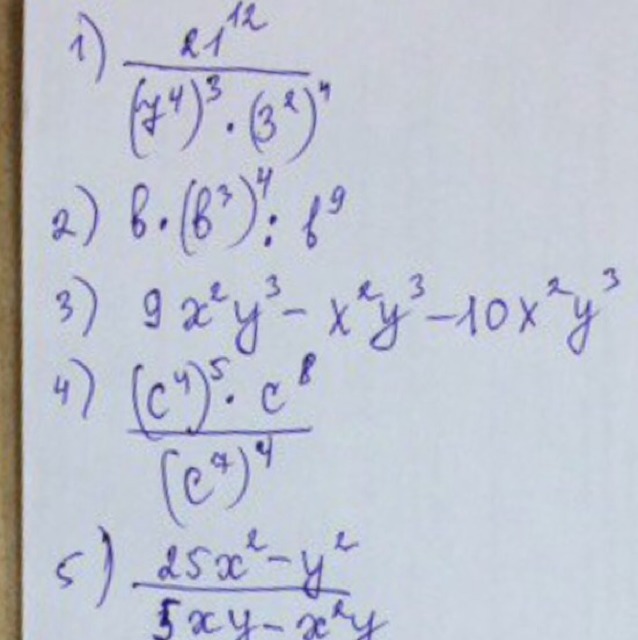 1) 21^12 / ((7^4)^3 · (3^2)^4)
2) b·(b^3)^4 : b^9
3) 9x^2y^3 - x^2y^3 - 10x^2y^3
4) ((c^4)^5 · c^8) / (c^7)^4
5) (25x^2 - y^2) / (5xy - x^2y)